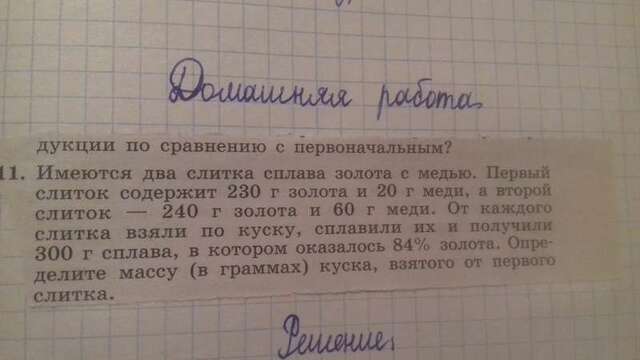 Домашняя работа.
дукции по сравнению с первоначальным?
11. Имеются два слитка сплава золота с медью. Первый
слиток содержит 230 г золота и 20 г меди, а второй
слиток — 240 г золота и 60 г меди. От каждого
слитка взяли по куску, сплавили их и получили
300 г сплава, в котором оказалось 84% золота. Опре-
делите массу (в граммах) куска, взятого от первого
слитка.
Решение.